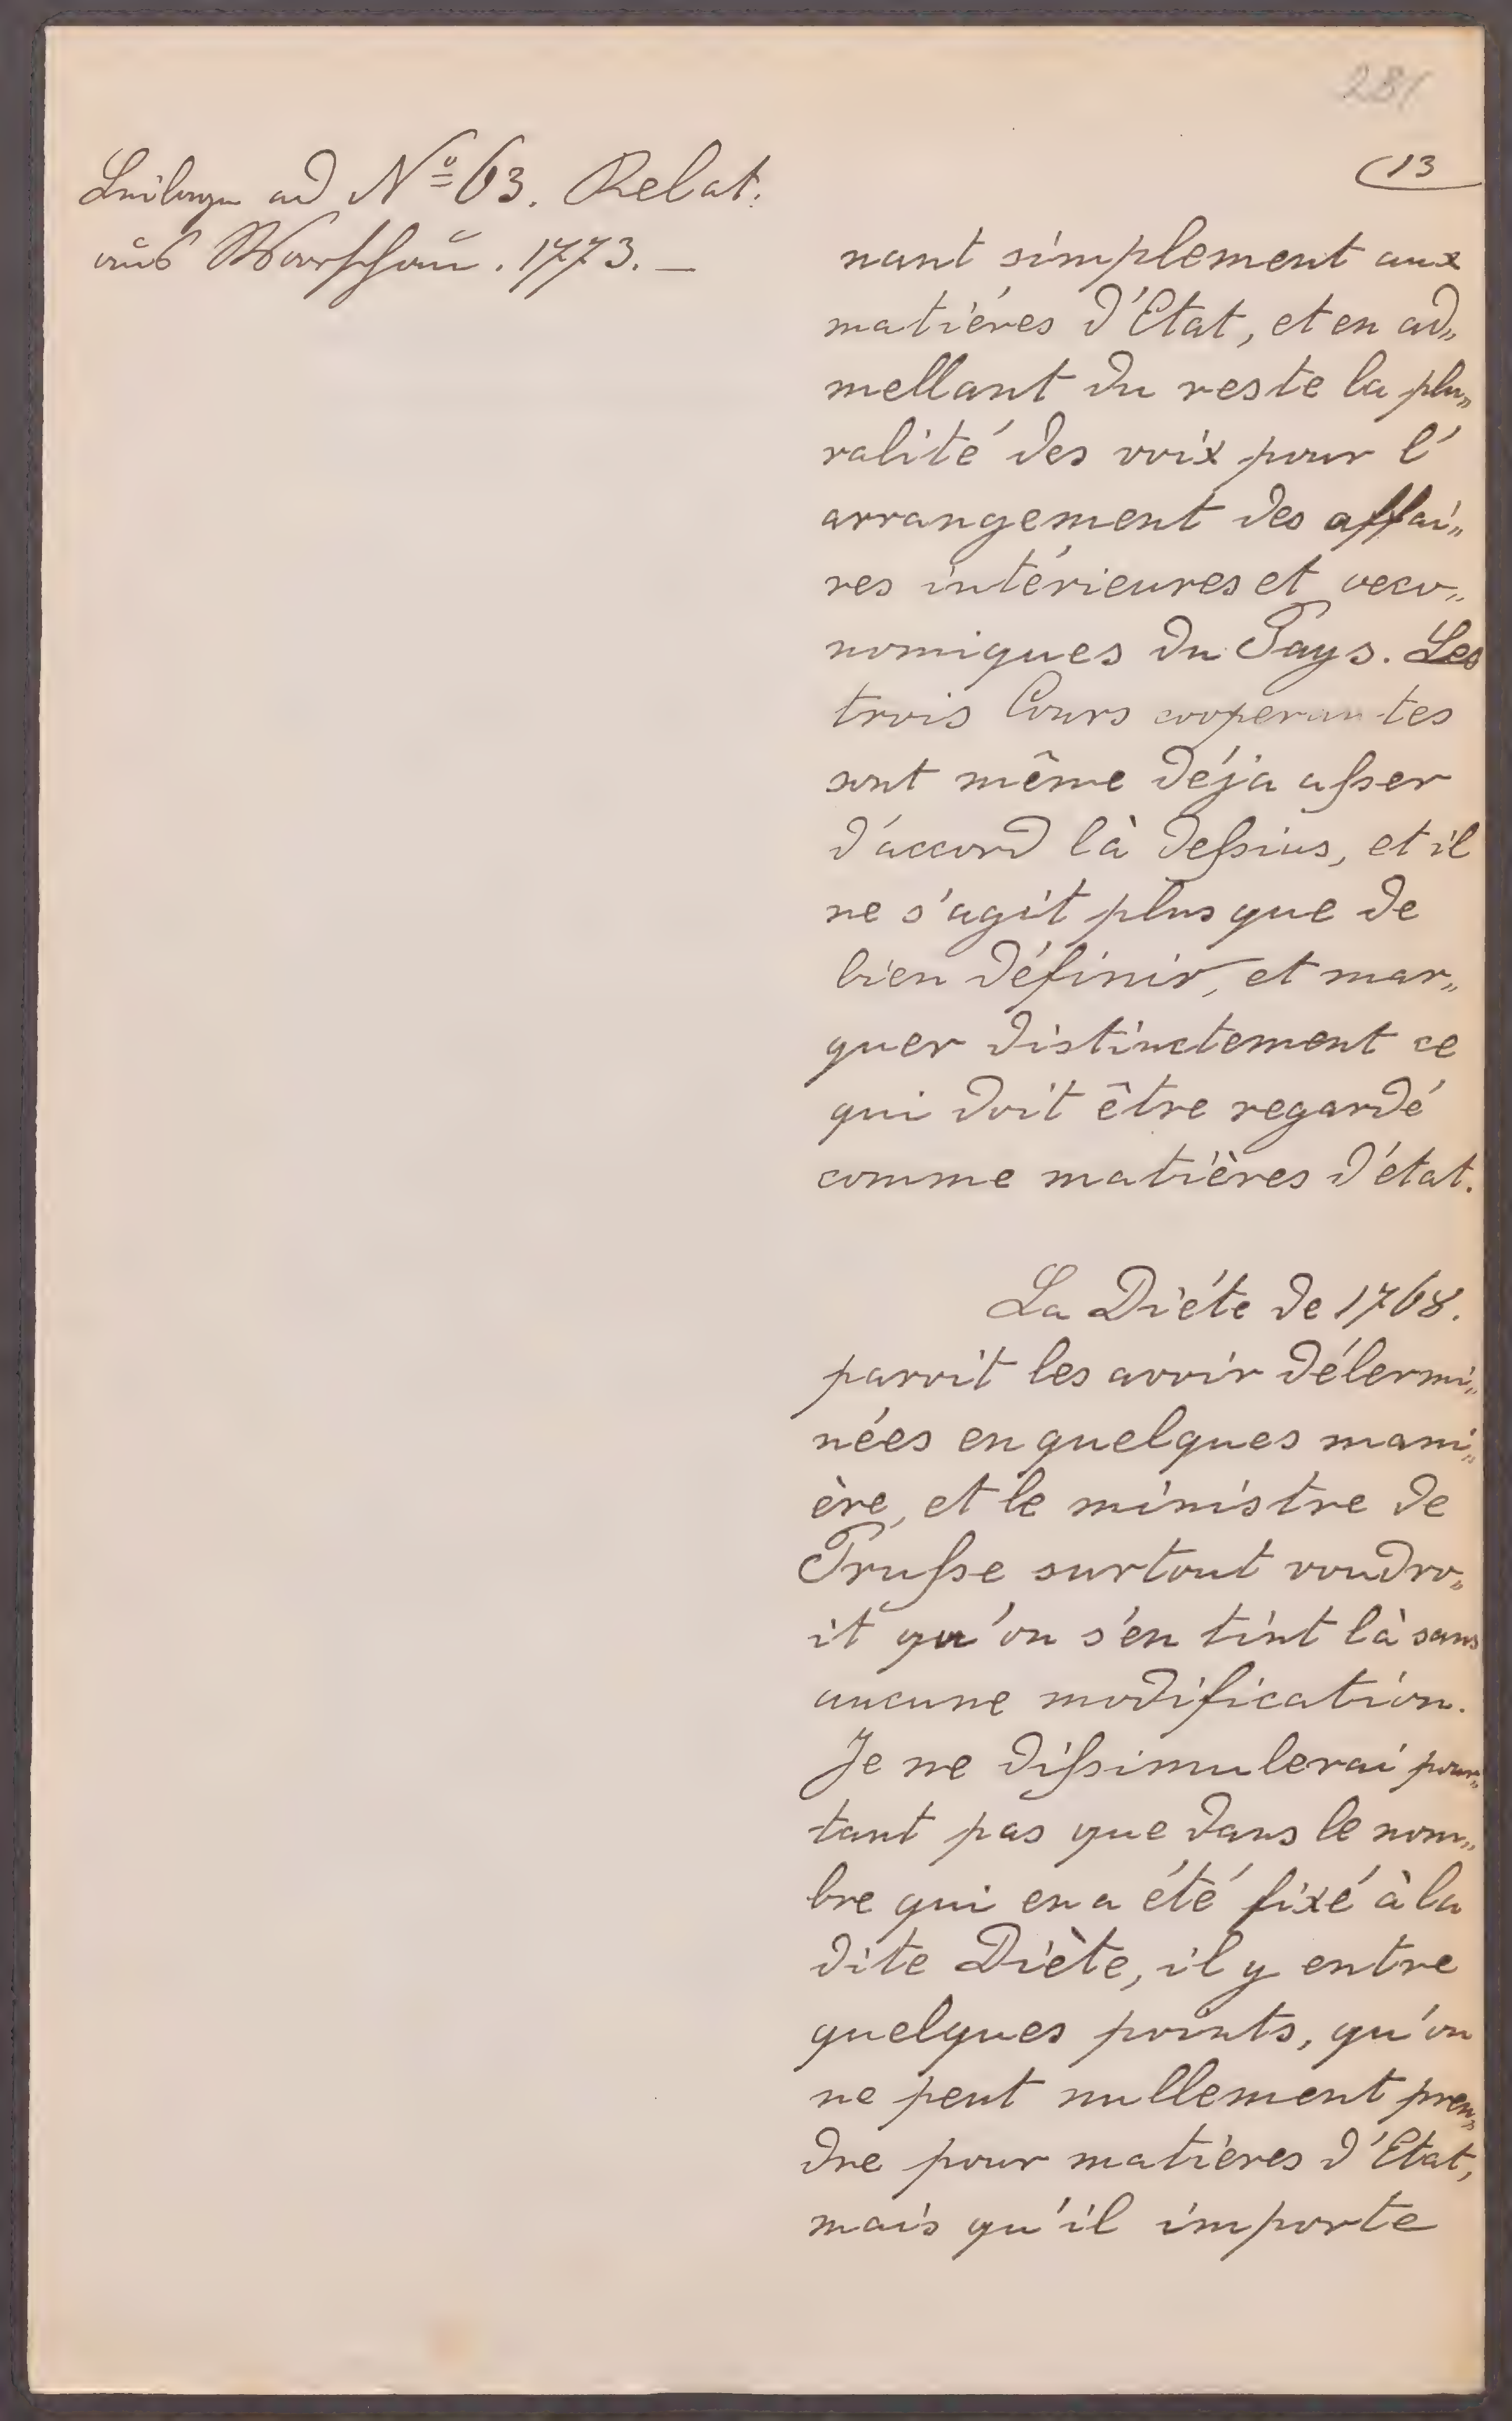 281
13
Beilage ad Nº 63. Relat.
aus Warschau. 1773. —
nant simplement aux
matiéres d'Etat, et en ad„
mettant du reste la plu„
ralité des voix pour l'
arrangement des affai„
res intérieures et oeco„
nomiques du Pays. Les
trois Cours cooperantes
sont même déja asser
d'accord là dessius, et il
ne s'agit plus que de
bien définir, et mar„
quer distinctement ce
qui doit être regardé
comme matières d'état.
La Diéte de 1768.
paroit les avoir détermi„
nées en quelques mani„
ère, et le ministre de
Prusse surtout voudro„
it qu'on s'en tint là sans
aucune modification.
Je ne dissimulerai pour„
tant pas que dans le nom„
bre qui en a été fixé à la
dite Diète, il y entre
quelques points, qu'on
ne peut nullement pren„
dre pour matières d'Etat,
mais qu'il importe